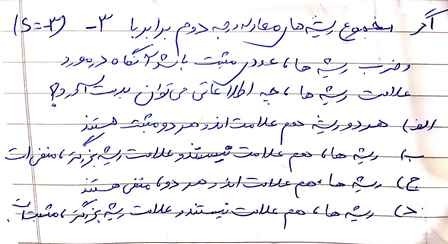 اگر مجموع ریشه های معادله درجه دوم برابر با ۳- (S=-۳)
و ضرب ریشه ها، عددی مثبت باشد، آنگاه در مورد
علامت ریشه ها، چه اطلاعاتی می‌توان بدست آورد؟
الف) هر دو ریشه هم علامت اند و هر دو مثبت هستند
ب) ریشه ها، هم علامت نیستند و علامت ریشه بزرگتر، منفی است
ج) ریشه ها، هم علامت اند و هر دو، منفی هستند
د) ریشه ها، هم علامت نیستند و علامت ریشه بزرگتر، مثبت است